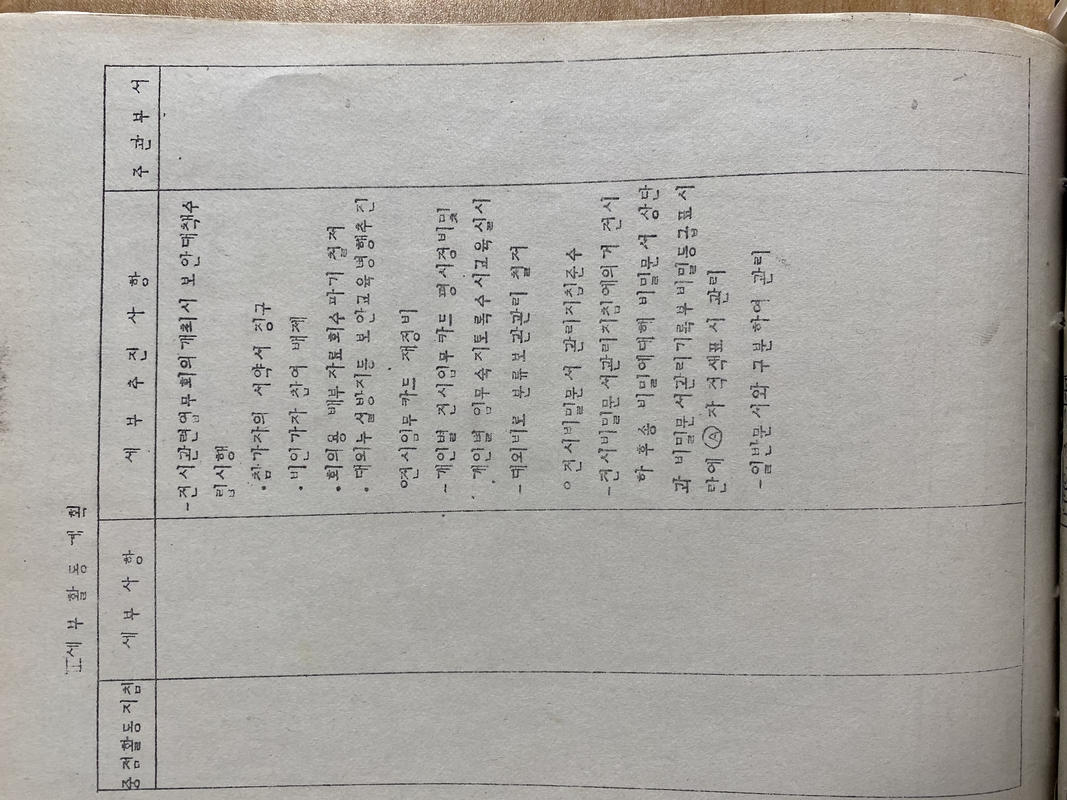 Ⅱ 세부 활동 계획
중점활동지침 세 부 사 항 세 부 추 진 사 항 주 관 부 서
-전시관련업무회의 개최시 보안대책수
립시행
•참가자의 서약서 징구
•비인가자 참여 배제
•회의용 배부자료회수파기 철저
•대외누설방지등 보안교육병행추진
o전시임무카드 재정비
-개인별 전시임무카드 평시정비및
개인별 임무숙지토록수시교육실시
-대외비로 분류보관관리 철저
o 전시비밀문서 관리지침준수
-전시비밀문서관리지침에의거 전시
하 후송 비밀에대해 비밀문서 상단
과 비밀문서관리기록부비밀등급표시
란에 Ⓐ자 적색표시 관리
-일반문서와 구분하여 관리